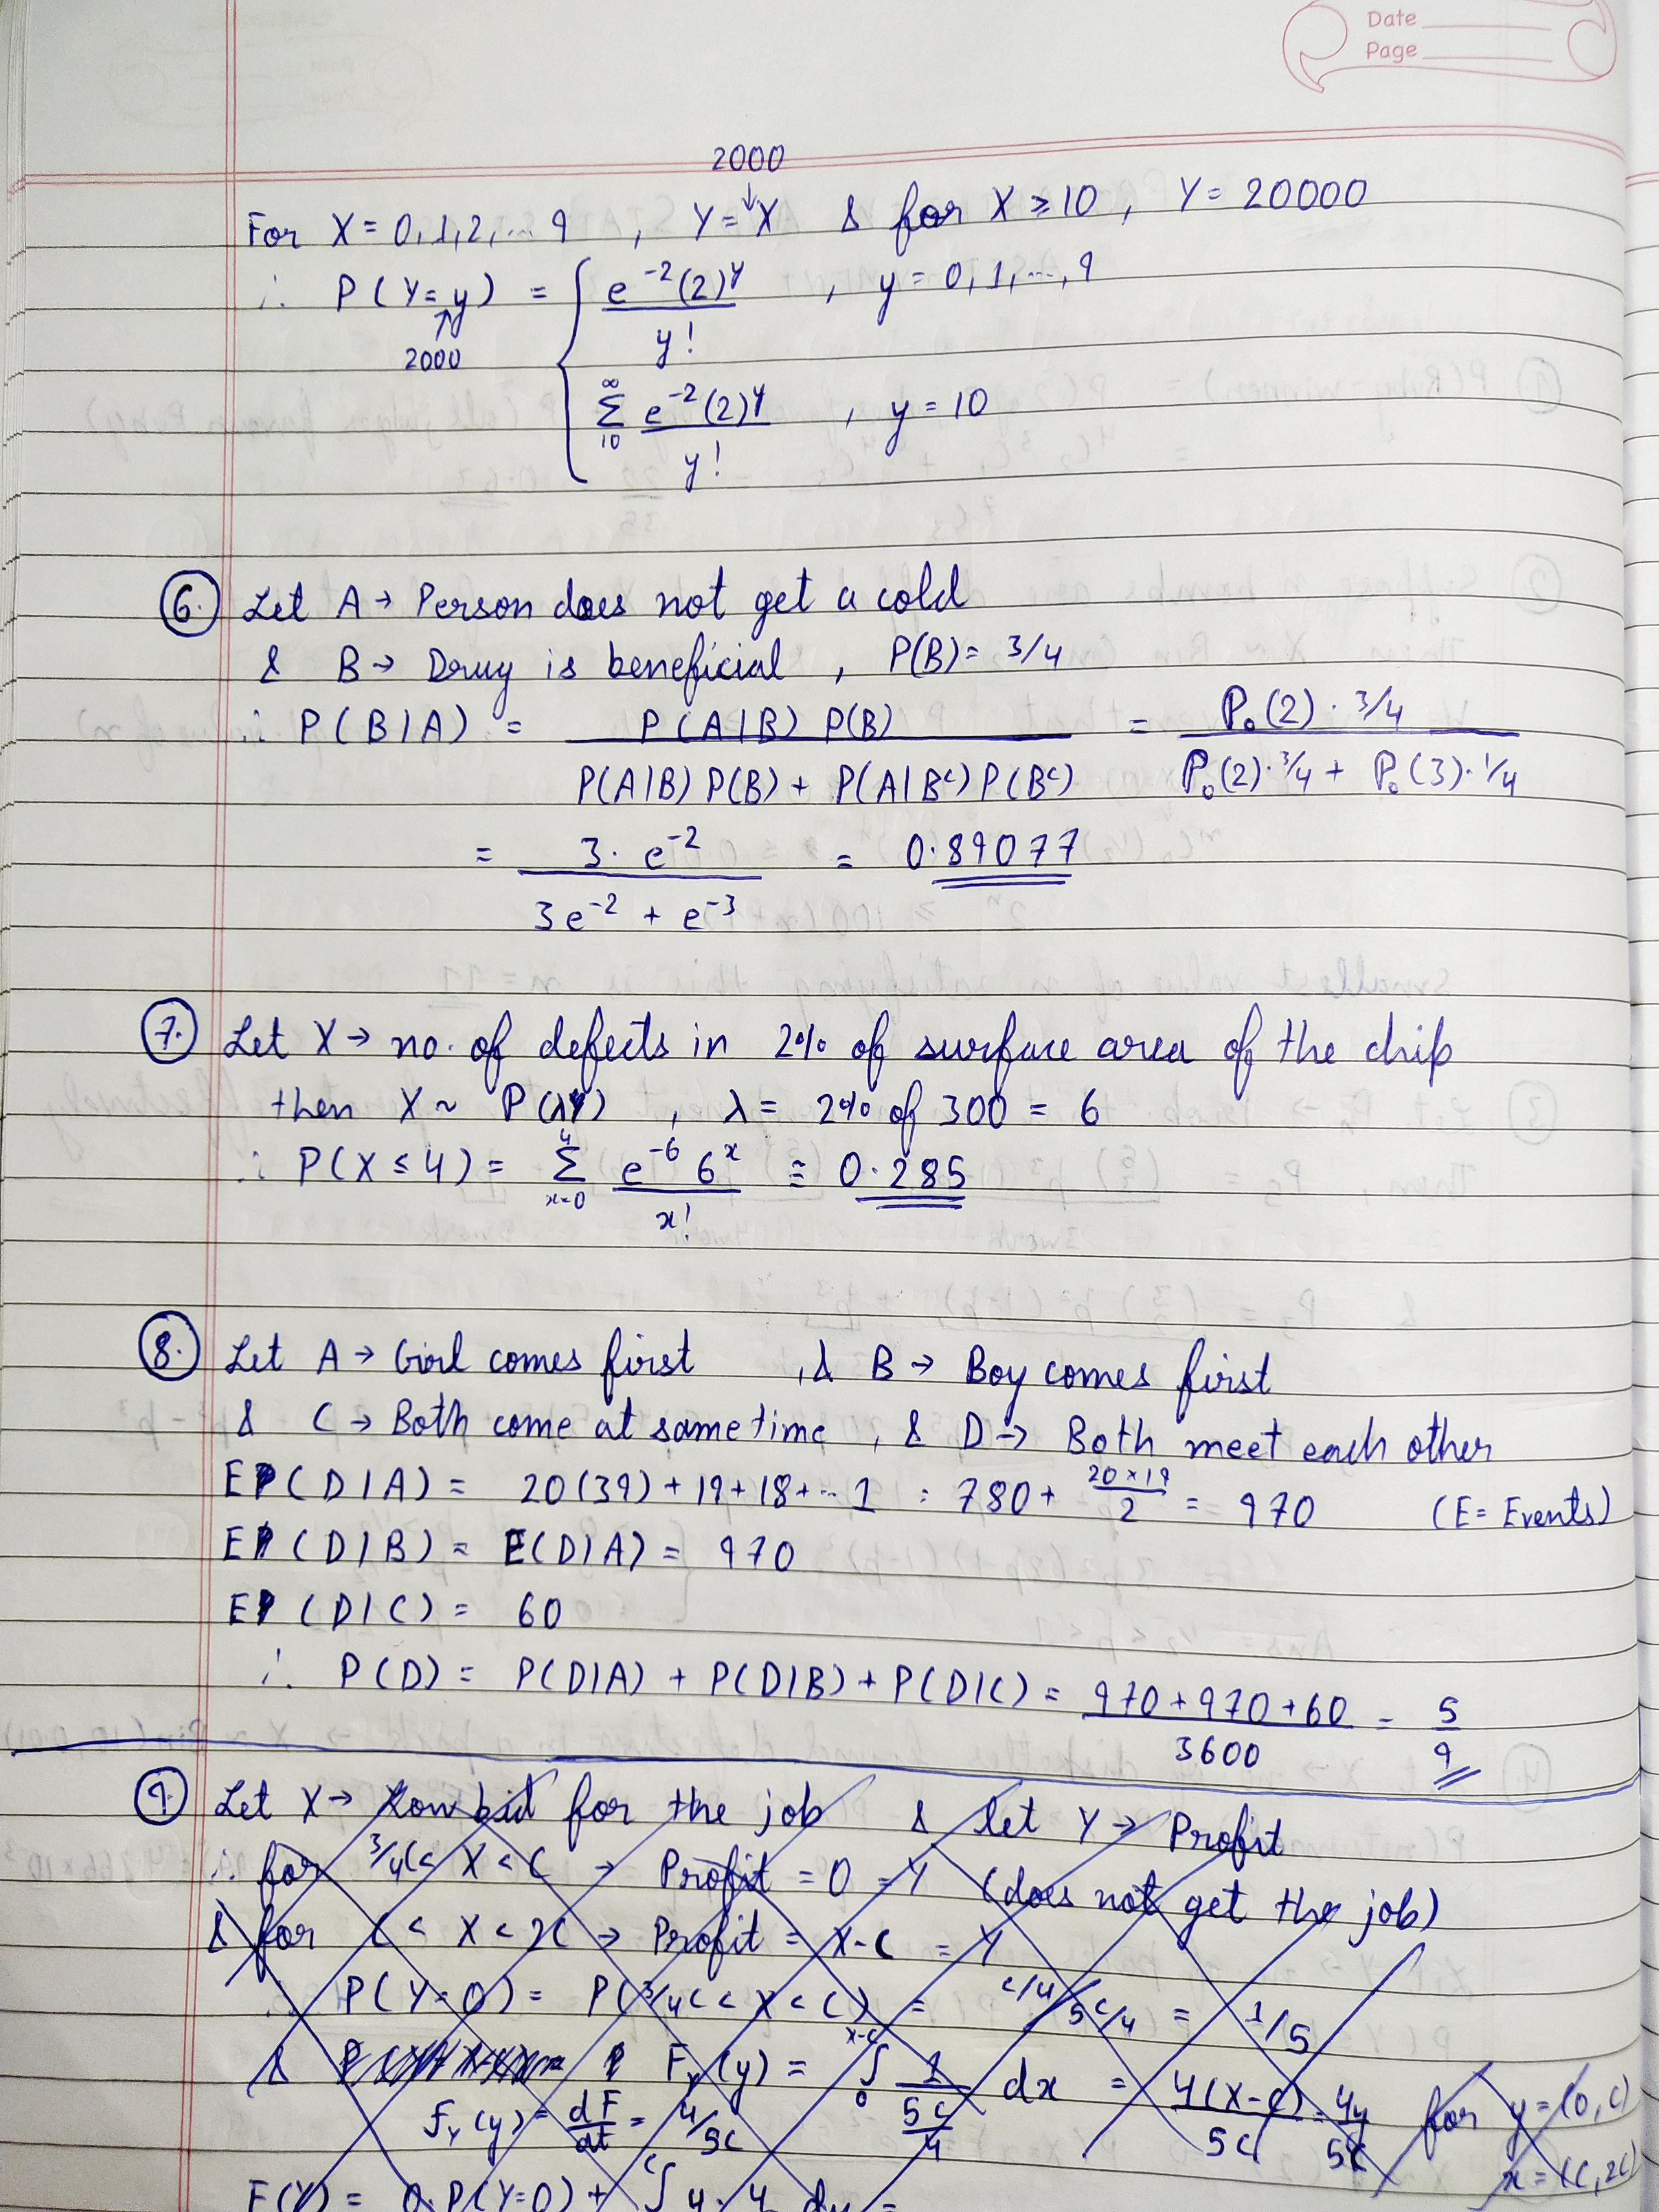 Date
Page
2000
↓
For X = 0,1,2,... 9 , Y = X & for X ≥ 10 , Y = 20000
∴ P(Y = y) = { e^-2 (2)^y / y! , y = 0,1,...,9
↑
2000
∞ Σ 10 e^-2 (2)^y / y! , y = 10
6. Let A → Person does not get a cold
& B → Drug is beneficial , P(B) = 3/4
∴ P(B|A) = P(A|B) P(B) / P(A|B) P(B) + P(A|B^c) P(B^c) = P₀(2) · 3/4 / P₀(2) · 3/4 + P₀(3) · 1/4
= 3 · e^-2 / 3e^-2 + e^-3 = 0.89077
7. Let X → no. of defects in 2% of surface area of the chip
then X ~ P(λ) , λ = 2% of 300 = 6
∴ P(X ≤ 4) = 4 Σ x=0 e^-6 6^x / x! ≅ 0.285
8. Let A → Girl comes first , & B → Boy comes first
& C → Both come at same time , & D → Both meet each other
E(D|A) = 20(39) + 19 + 18 + ... 1 = 780 + 20×19 / 2 = 970 (E = Events)
E(D|B) = E(D|A) = 970
E(D|C) = 60
∴ P(D) = P(D|A) + P(D|B) + P(D|C) = 970 + 970 + 60 / 3600 = 5/9
9. Let X → Low bid for the job & let Y → Profit
∴ for 3/4C < X < C → Profit = 0 = Y (does not get the job)
& for C < X < 2C → Profit = X-C = Y
∴ P(Y=0) = P(3/4C < X < C) = C/4 / 5C/4 = 1/5
& F_Y(y) = x-c ∫ 0 1 / 5C/4 dx = 4(X-C) / 5C = 4y / 5C for y = (0,C)
f_Y(y) = dF/dt = 4/5C x = (C,2C)
E(Y) = 0·P(Y=0) + C ∫ y · 4 dy =